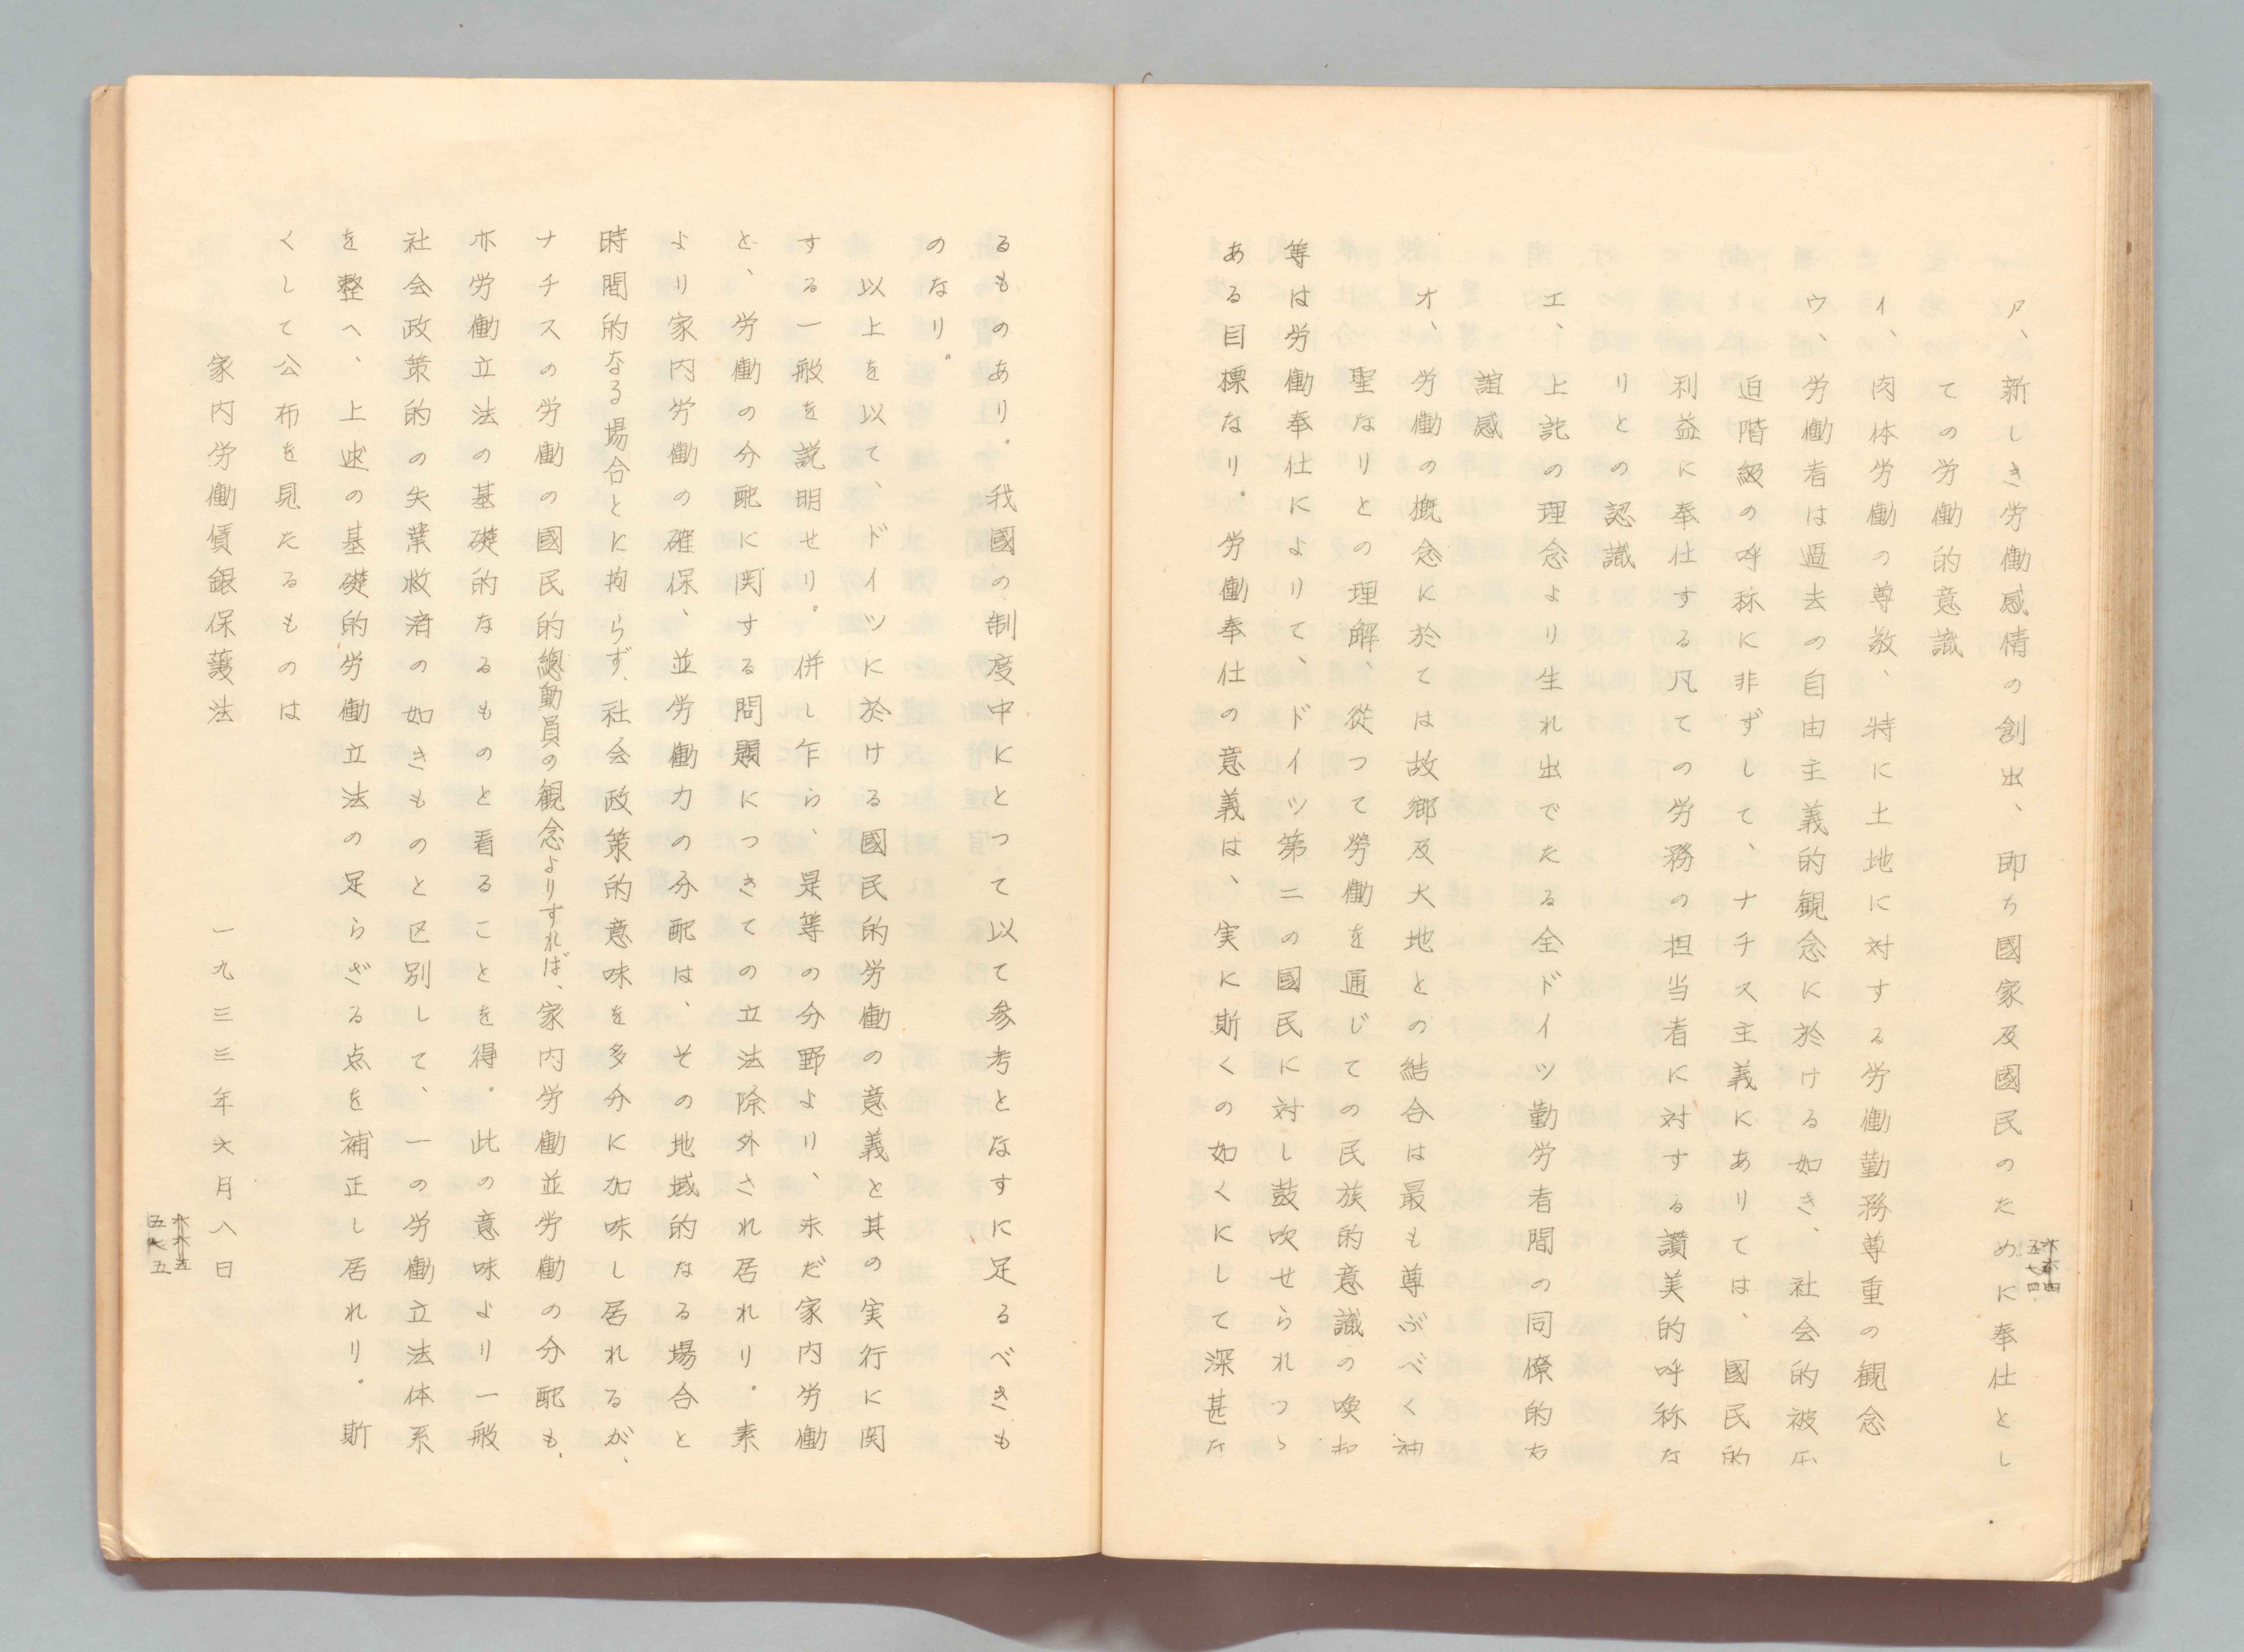 ア、新しき労働感情の創出、即ち國家及國民のために奉仕とし
ての労働的意識
イ、肉体労働の尊敬、特に土地に対する労働勤務尊重の観念
ウ、労働者は過去の自由主義的観念に於ける如き、社会的被圧
迫階級の呼称に非ずして、ナチス主義にありては、國民的
利益に奉仕する凡ての労務の担当者に対する讃美的呼称な
りとの認識
エ、上記の理念より生れ出でたる全ドイツ勤労者間の同僚的友
誼感
オ、労働の概念に於ては故郷及大地との結合は最も尊ぶべく神
聖なりとの理解、従つて勞働を通じての民族的意識の喚起
等は労働奉仕によりて、ドイツ第二の國民に対し鼓吹せられつゝ
ある目標なり。労働奉仕の意義は、実に斯くの如くにして深甚な
るものあり。我國の制度中にとつて以て参考となすに足るべきも
のなり。
以上を以て、ドイツに於ける國民的労働の意義と其の実行に関
する一般を説明せり。併し乍ら、是等の分野より、未だ家内労働
と、労働の分配に関する問題につきての立法除外され居れり。素
より家内労働の確保、並労働力の分配は、その地域的なる場合と
時間的なる場合とに拘らず、社会政策的意味を多分に加味し居れるが、
ナチスの労働の國民的總動員の観念よりすれば、家内労働並労働の分配も、
亦労働立法の基礎的なるものと看ることを得。此の意味より一般
社会政策的の失業救済の如きものと区別して、一の労働立法体系
を整へ、上述の基礎的労働立法の足らざる点を補正し居れり。斯
くして公布を見たるものは
家内労働賃銀保護法　一九三三年六月八日